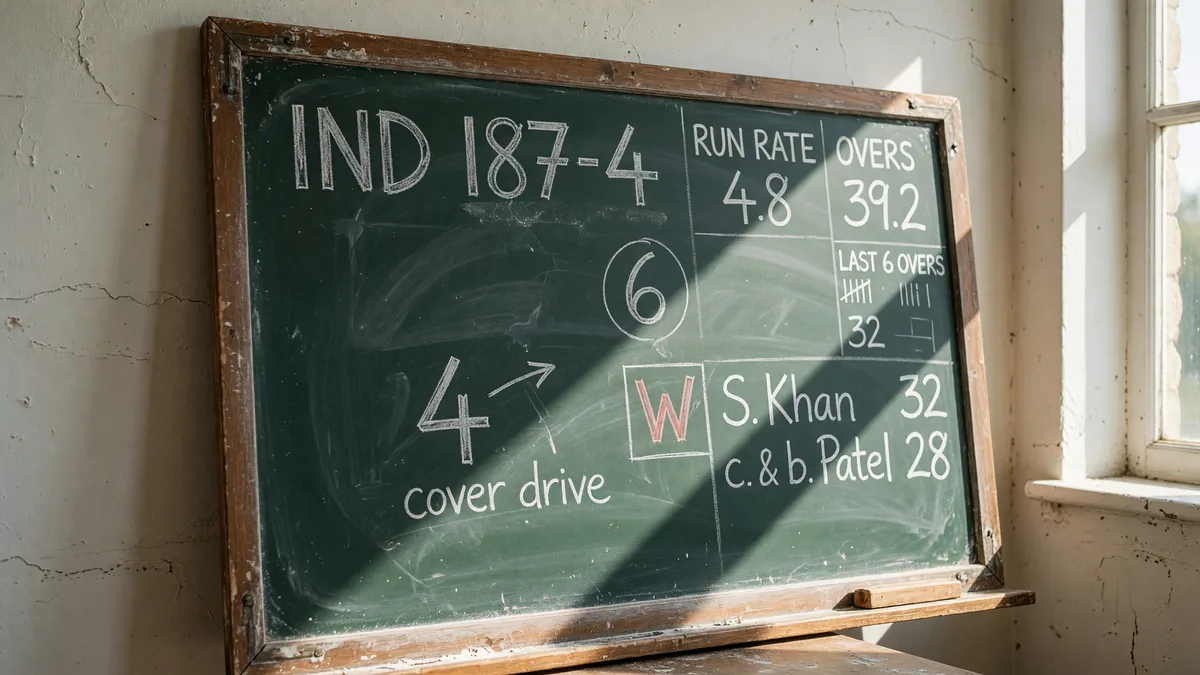 IND 187-4
RUN RATE
4.8
OVERS
39.2
LAST 6 OVERS
32
6
4
cover drive
W
S. Khan 32
c. & b. Patel 28